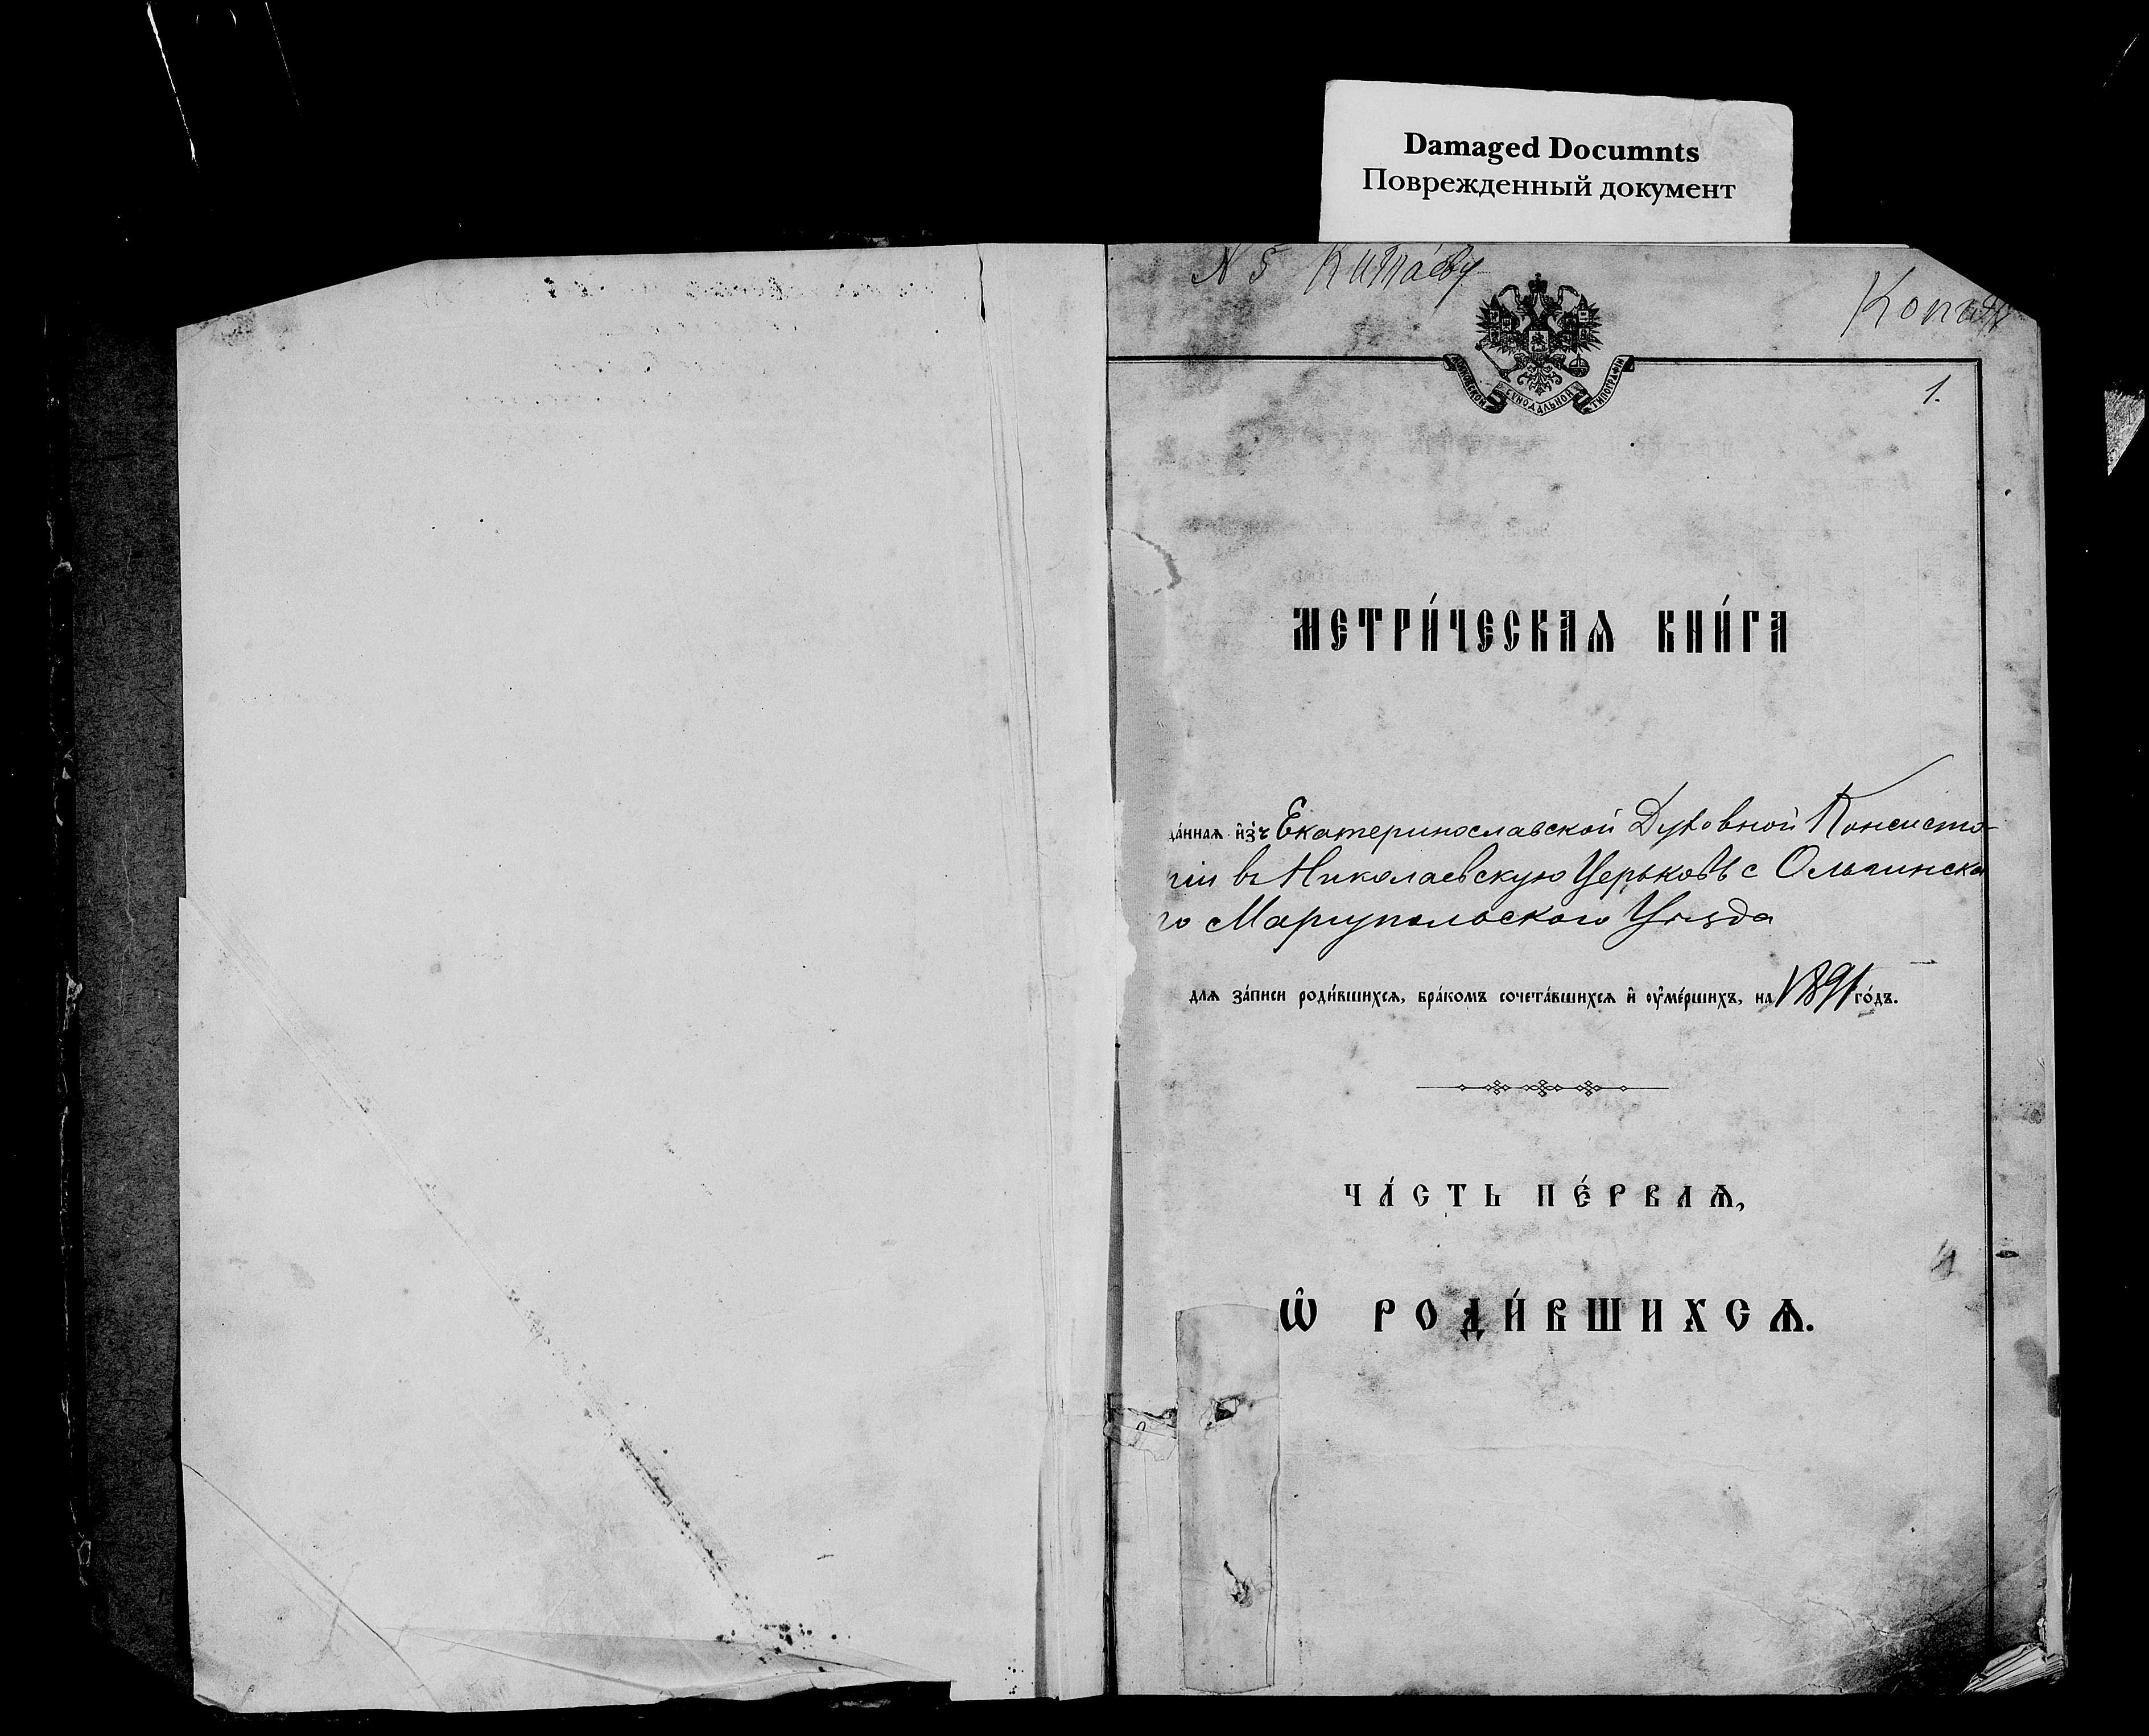 Damaged Documnts
Поврежденный документ
N 5 Китаеву
МОСКОВСКОЙ СѴНОДАЛЬНОЙ ТИПОГРАФІИ
1.
МЕТРИ́ЧЕСКАѦ КНИ́ГА
да́ннаѧ и҆зъ Екатеринославской Духовной Консисто-
ріи въ Николаевскую Церьковь с Ольгинска
го Мариупольскаго Уѣзда
длѧ за́писи роди́вшихсѧ, бра́комъ сочета́вшихсѧ и҆ ᲂу҆ме́ршихъ, на 1891 го́дъ.
ЧА́СТЬ ПЕ́РВАѦ,
Ѡ҆ РОДИ́ВШИХСѦ.